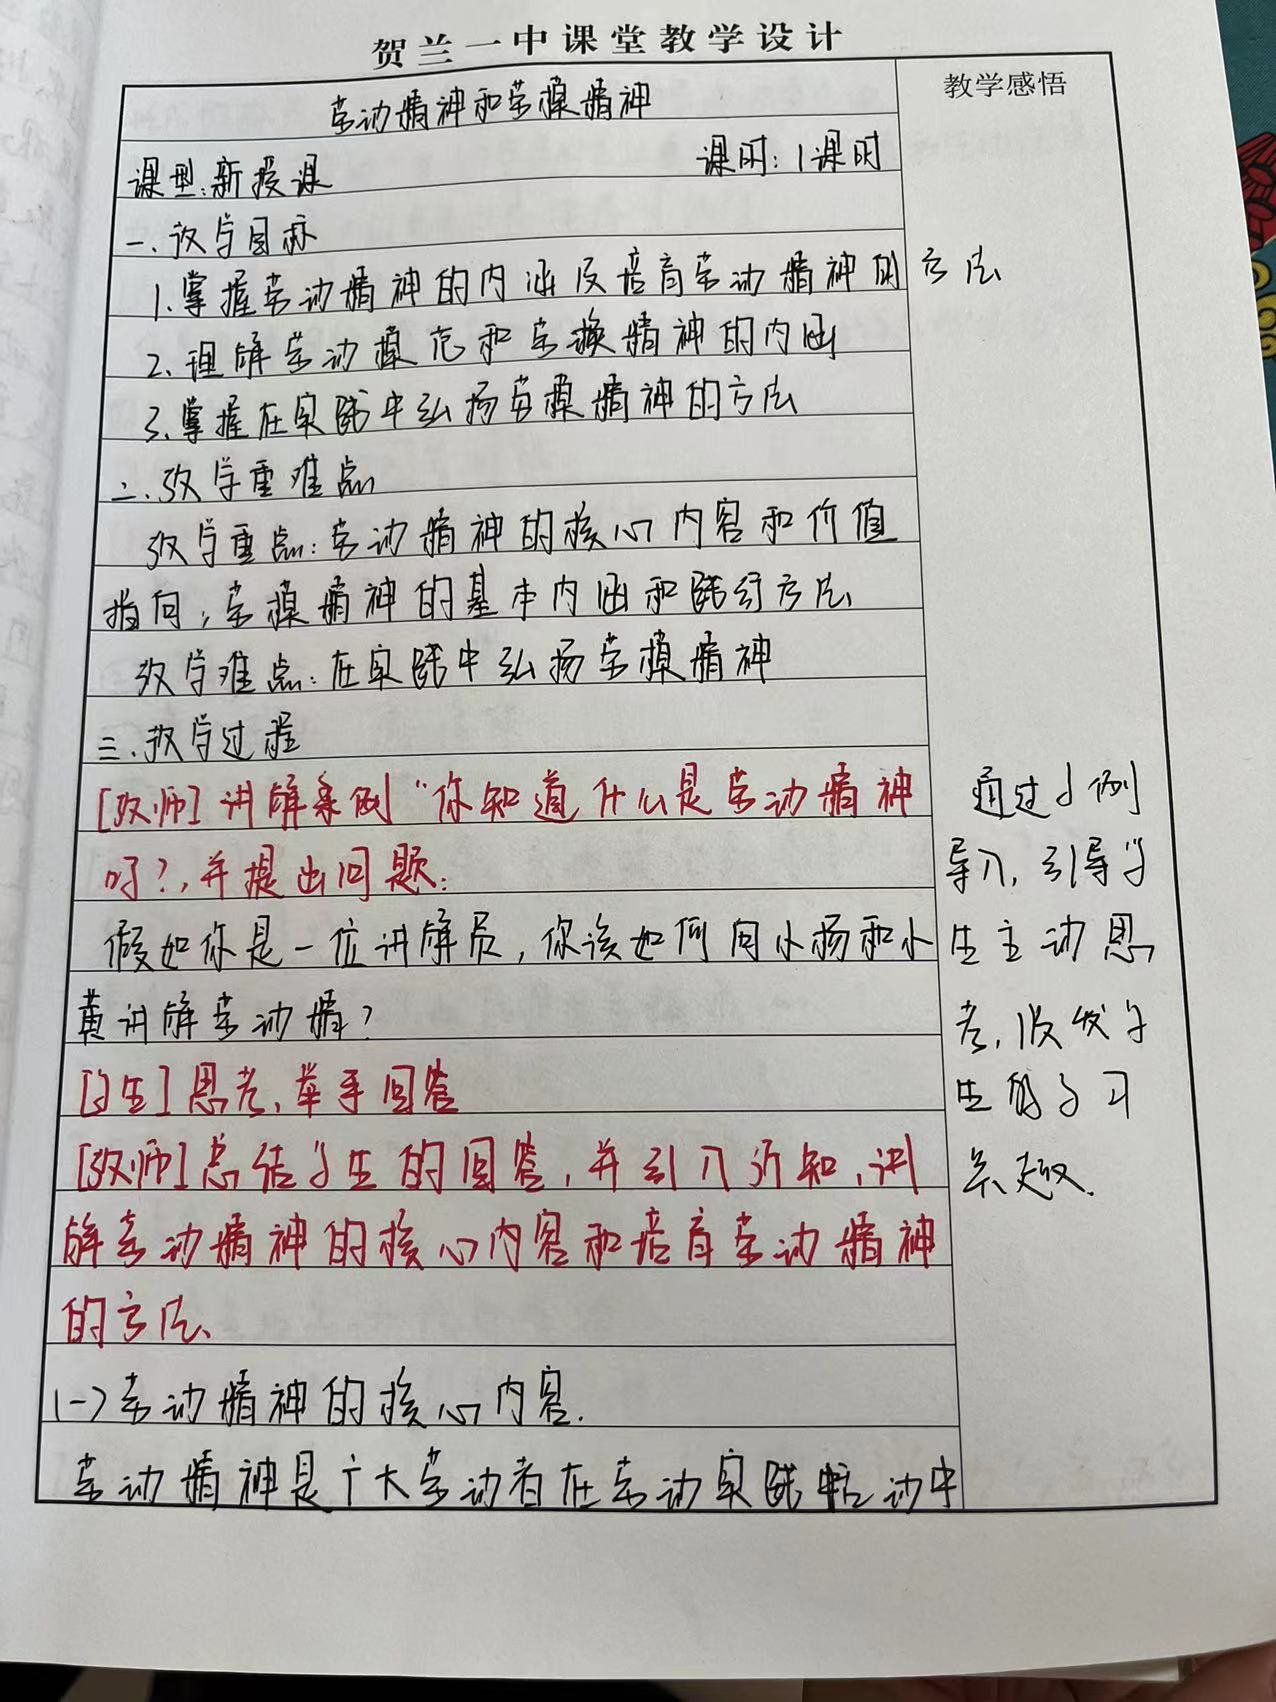 贺兰一中课堂教学设计
教学感悟
劳动精神和劳模精神
课型:新授课 课时:1课时
一.教学目标
1.掌握劳动精神的内涵及培育劳动精神的方法
2.理解劳动模范和劳模精神的内涵
3.掌握在实践中弘扬劳模精神的方法
二.教学重难点
教学重点:劳动精神的核心内容和价值
指向,劳模精神的基本内涵和践行方法
教学难点:在实践中弘扬劳模精神
三.教学过程
[教师]讲解案例“你知道什么是劳动精神
吗?,并提出问题:
假如你是一位讲解员,你该如何向小杨和小
黄讲解劳动精?
[学生]思考,举手回答
[教师]总结学生的回答,并引入新知,讲
解劳动精神的核心内容和培育劳动精神
的方法、
(一)劳动精神的核心内容.
劳动精神是广大劳动者在劳动实践活动中
通过小例
导入,引导学
生主动思
考,激发学
生的学习
兴趣.